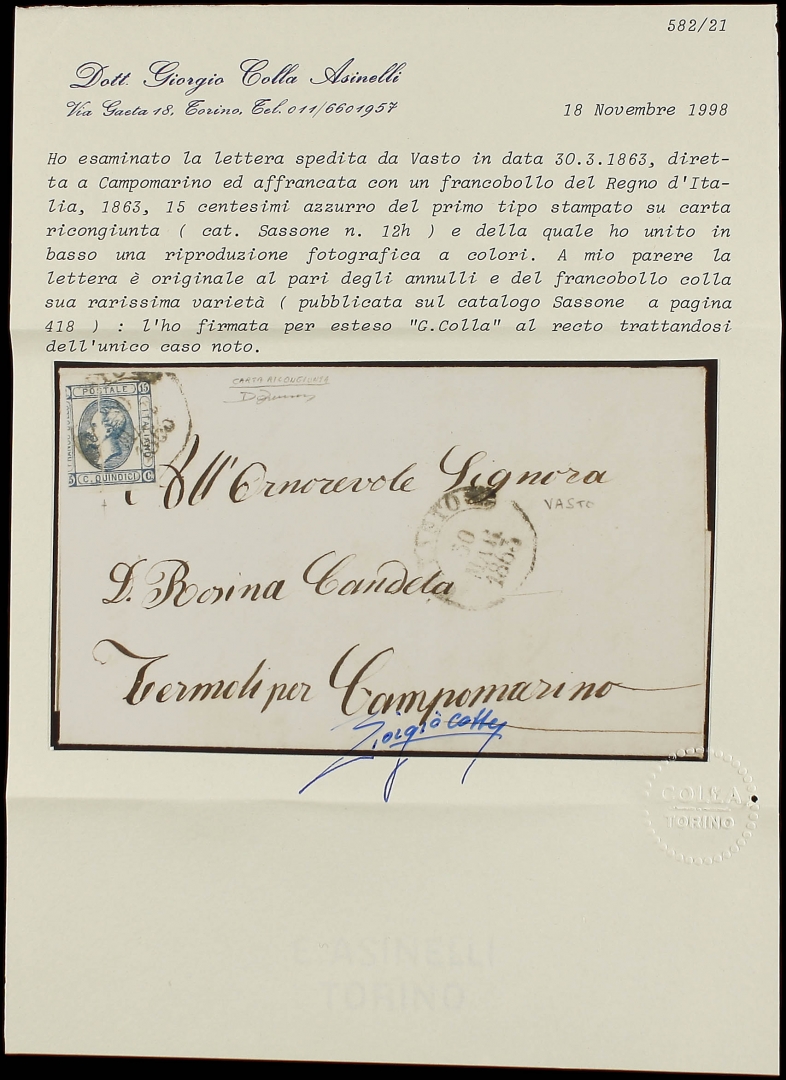 582/21
Dott. Giorgio Colla Asinelli
Via Gaeta 18, Torino, Tel. 011/6601957
18 Novembre 1998
Ho esaminato la lettera spedita da Vasto in data 30.3.1863, diret-
ta a Campomarino ed affrancata con un francobollo del Regno d'Ita-
lia, 1863, 15 centesimi azzurro del primo tipo stampato su carta
ricongiunta ( cat. Sassone n. 12h ) e della quale ho unito in
basso una riproduzione fotografica a colori. A mio parere la
lettera è originale al pari degli annulli e del francobollo colla
sua rarissima varietà ( pubblicata sul catalogo Sassone a pagina
418 ) : l'ho firmata per esteso "G.Colla" al recto trattandosi
dell'unico caso noto.
CARTA RICONGIUNTA
POSTALE 15
ITALIANO
C. QUINDICI C
All' Ornorevole Signora
VASTO
30
MAR
1863
D. Rosina Candela
Termoli per Campomarino
Giorgio Colla
COLLA
TORINO
E. ASINELLI
TORINO